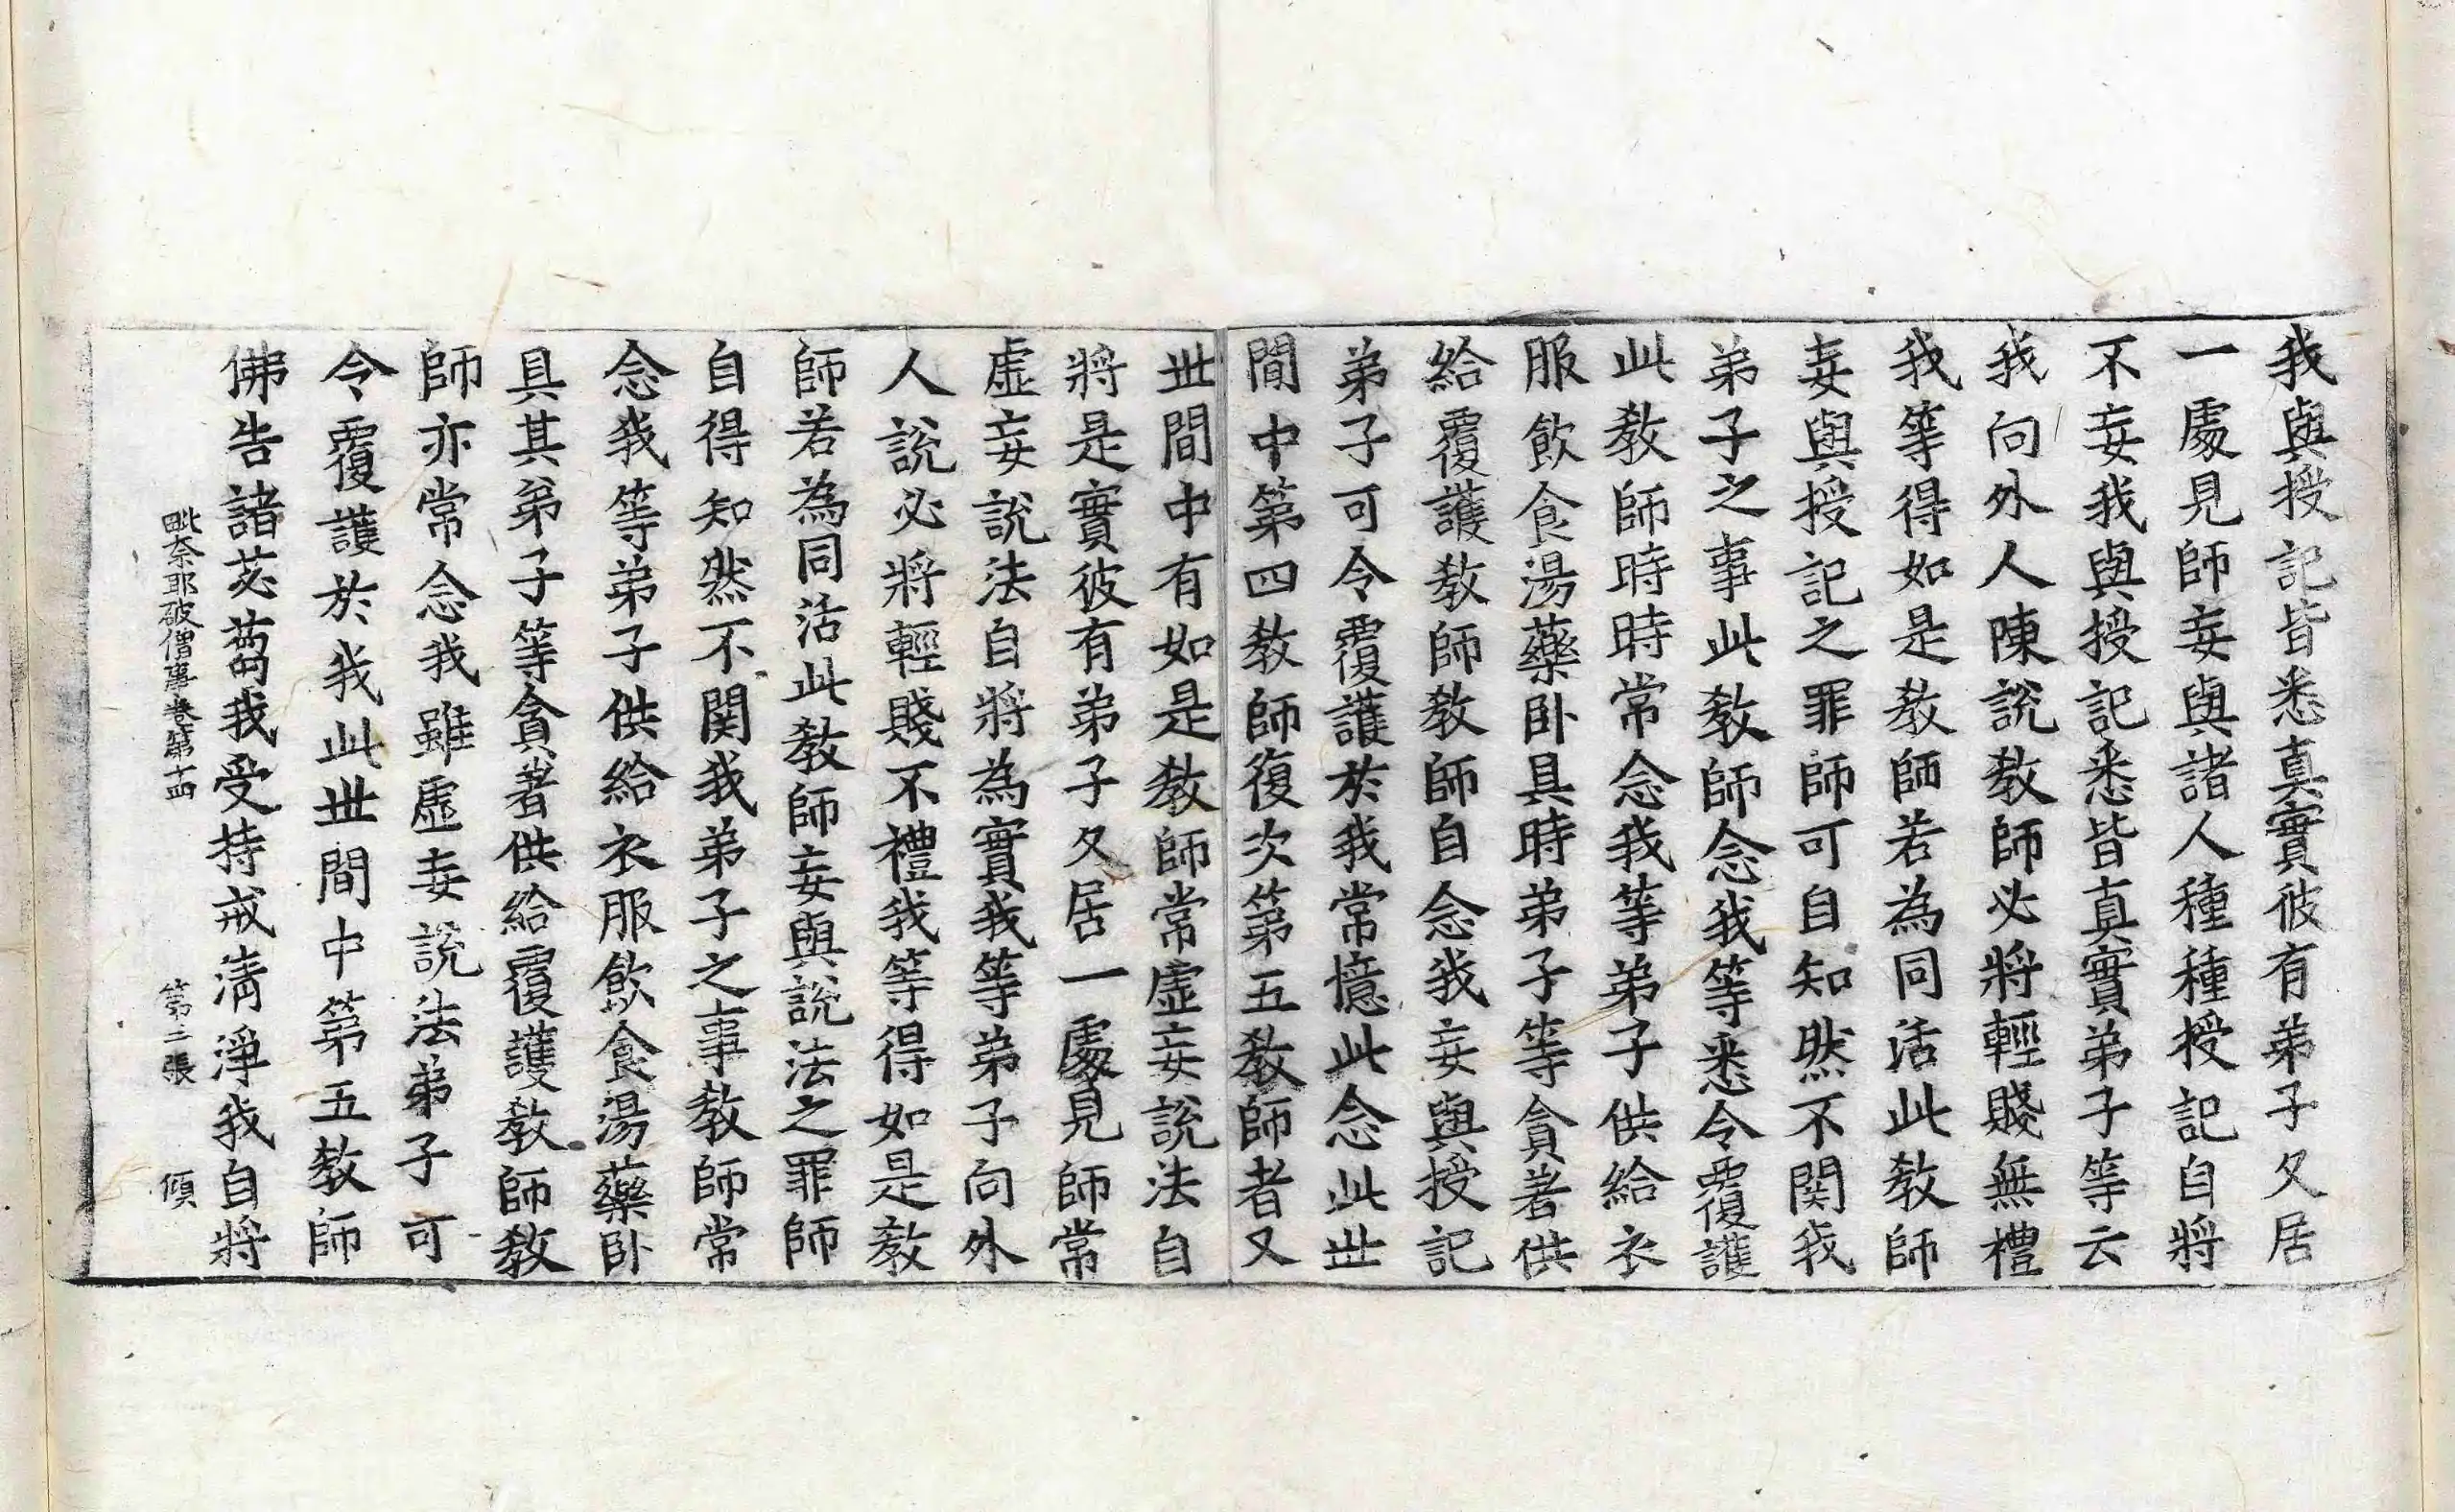 我與授記皆悉真實彼有弟子久居
一處見師妄與諸人種種授記自將
不妄我與授記悉皆真實弟子等云
我向外人陳說教師必將輕賤無禮
我等得如是教師若為同活此教師
妄與授記之罪師可自知然不関我
弟子之事此教師念我等悉令覆護
此教師時時常念我等弟子供給衣
服飲食湯藥卧具時弟子等貪著供
給覆護教師教師自念我妄與授記
弟子可令覆護於我常憶此念此世
間中第四教師復次第五教師者又
世間中有如是教師常虛妄說法自
將是實彼有弟子久居一處見師常
虛妄說法自將為實我等弟子向外
人說必將輕賤不禮我等得如是教
師若為同活此教師妄與說法之罪師
自得知然不関我弟子之事教師常
念我等弟子供給衣服飲食湯藥卧
具其弟子等貪著供給覆護教師教
師亦常念我雖虛妄說法弟子可
令覆護於我此世間中第五教師
佛告諸苾蒭我受持戒清淨我自將
毗奈耶破僧事卷第十四 第二張 傾